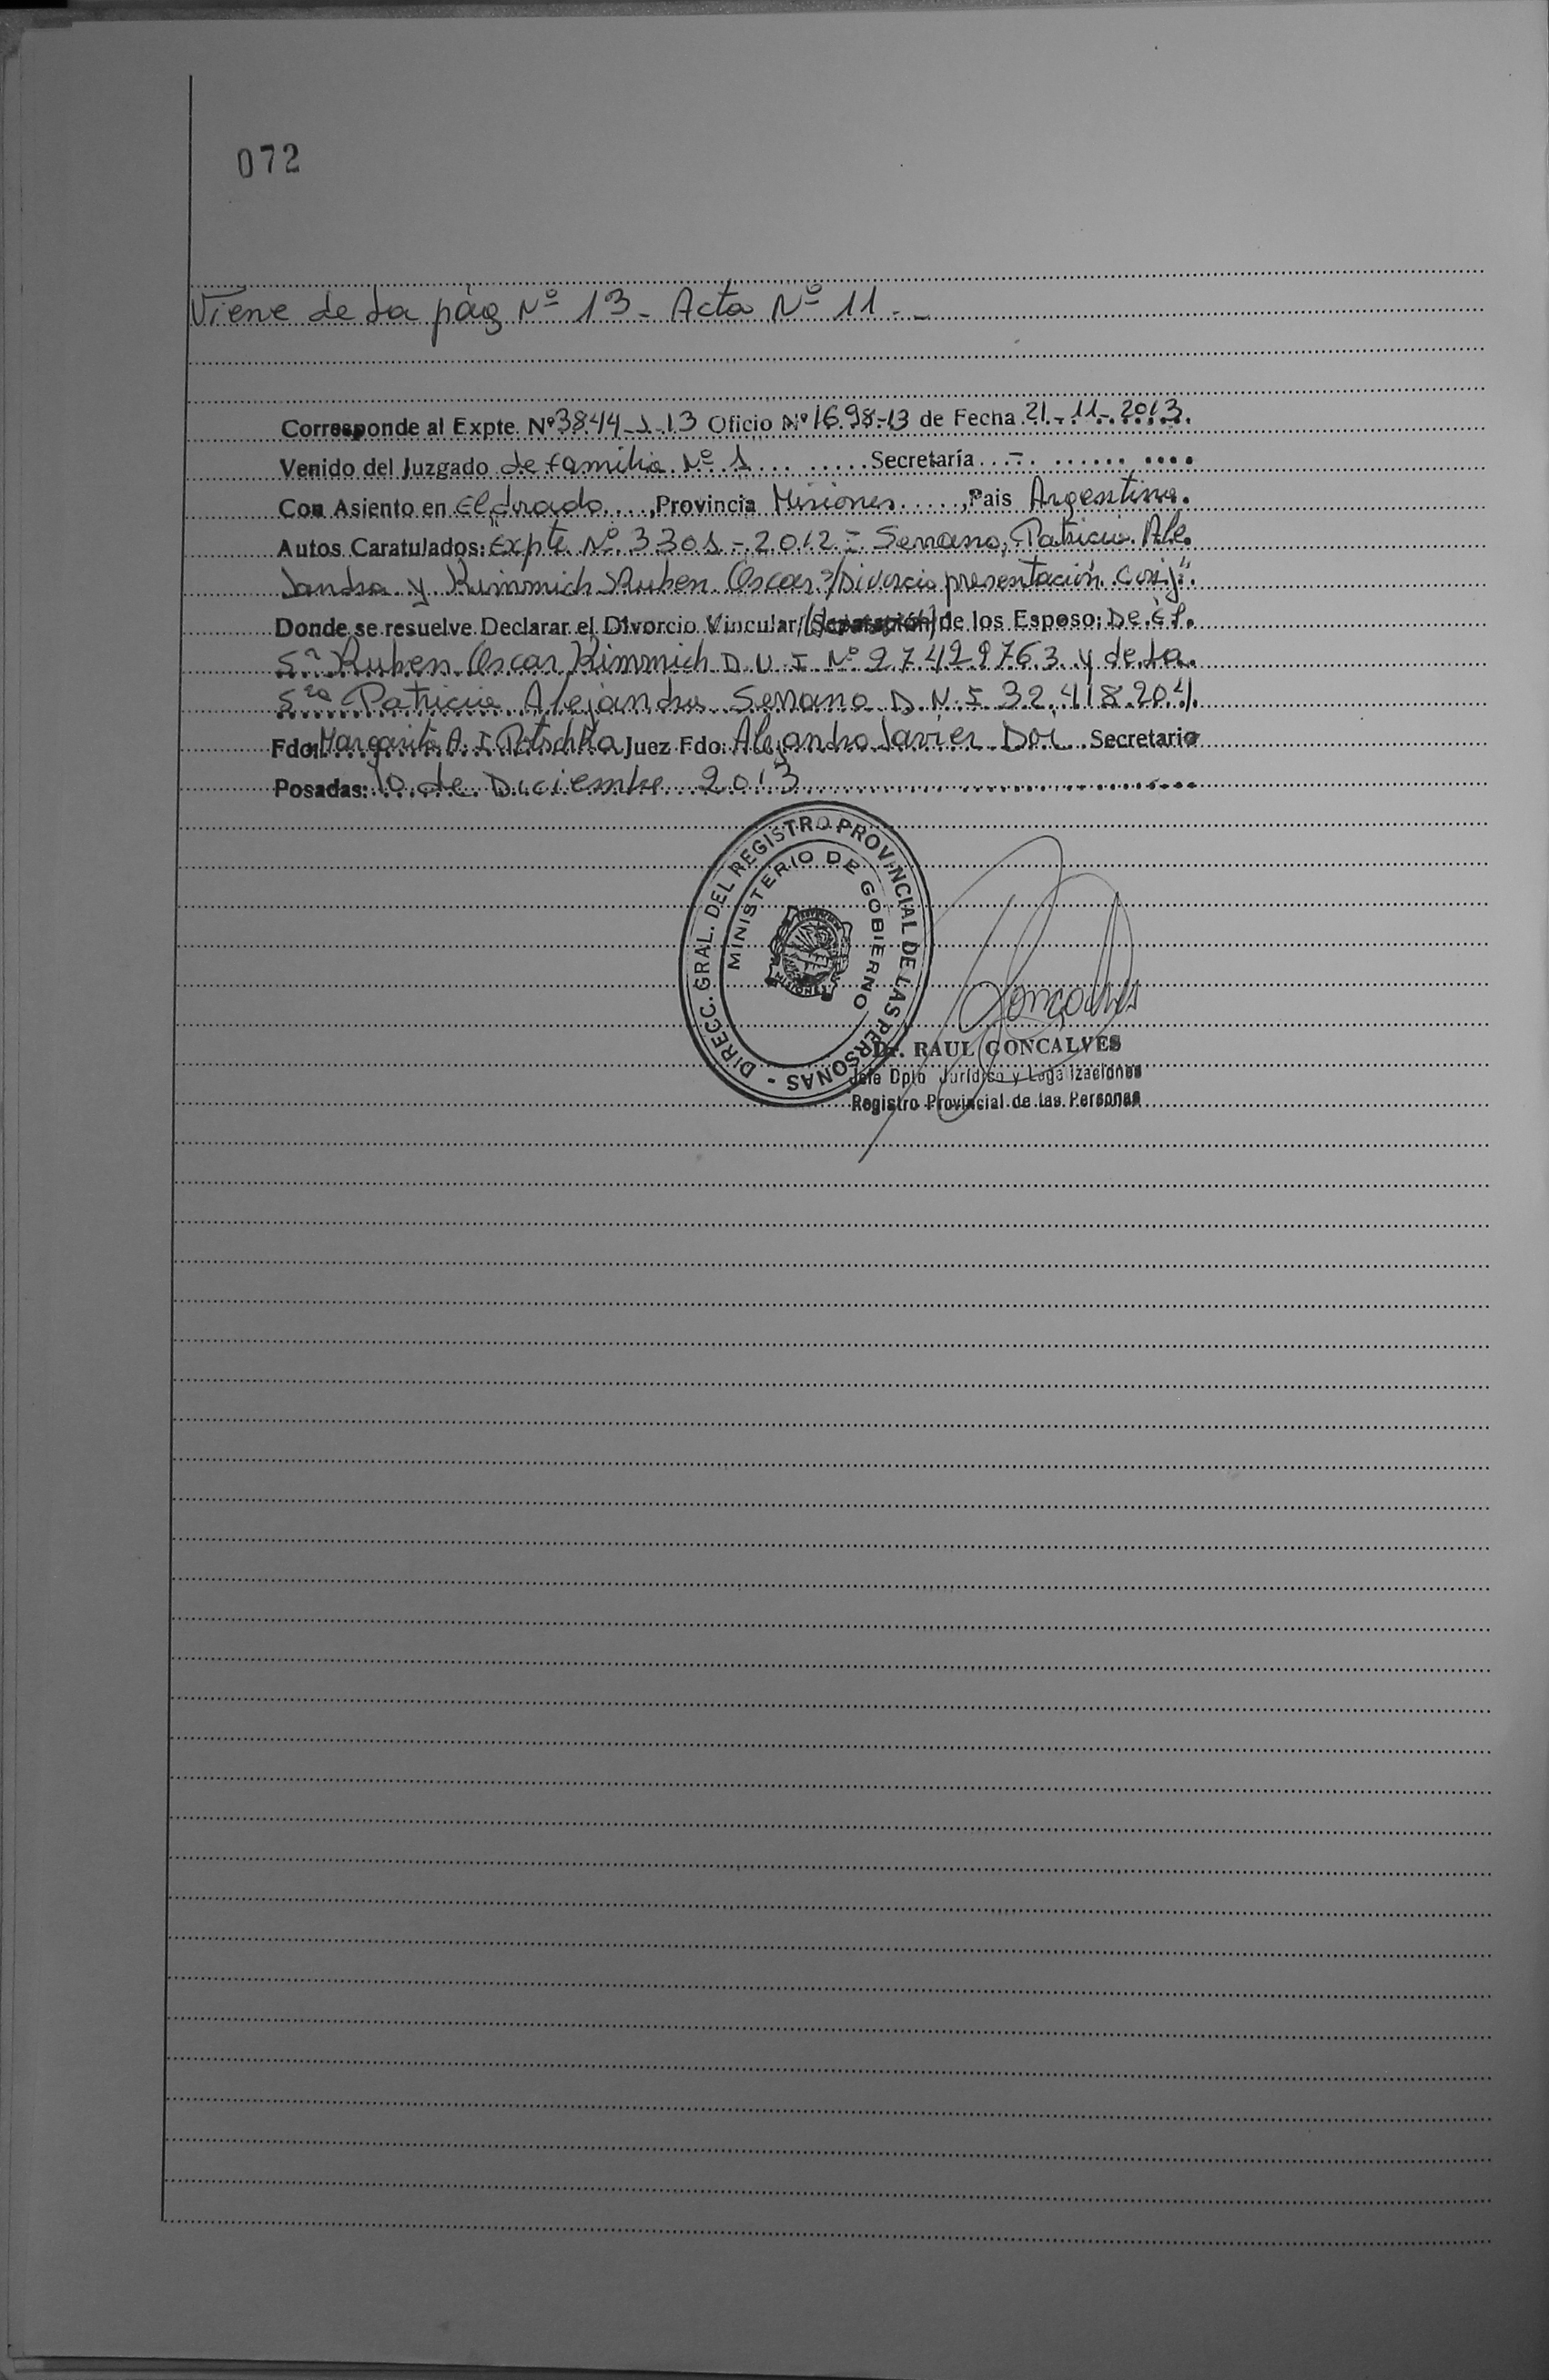 072
Viene de La pág Nº 13 - Acta Nº 11 - -
Corresponde al Expte. Nº 3844-J-13 Oficio Nº 1698-13 de Fecha 21-11-2013.
Venido del Juzgado de familia Nº 1 Secretaría -
Con Asiento en Eldorado, Provincia Misiones, Pais Argentina.
Autos Caratulados: "Expte Nº 3301-2012 - Serrano, Patricia Ale
Jandra y Kimmich Ruben Oscar s/Divorcio presentación conj".
Donde se resuelve Declarar el Divorcio Vincular/(Separación) de los Esposo: De él
Sr Ruben Oscar Kimmich D N I Nº 27429763 y de La
Sra Patricia Alejandra Serrano D.N.I 32.418.204.
Fdo: Margarita A. I. Potschka Juez Fdo: Alejandro Javier Doi Secretario
Posadas: 10 de Diciembre 2013
DIRECC. GRAL. DEL REGISTRO PROVINCIAL DE LAS PERSONAS -
MINISTERIO DE GOBIERNO
MISIONES
Goncalves
Dr. RAUL GONCALVES
Jefe Dpto Juridico y Legalizaciones
Registro Provincial de las Personas